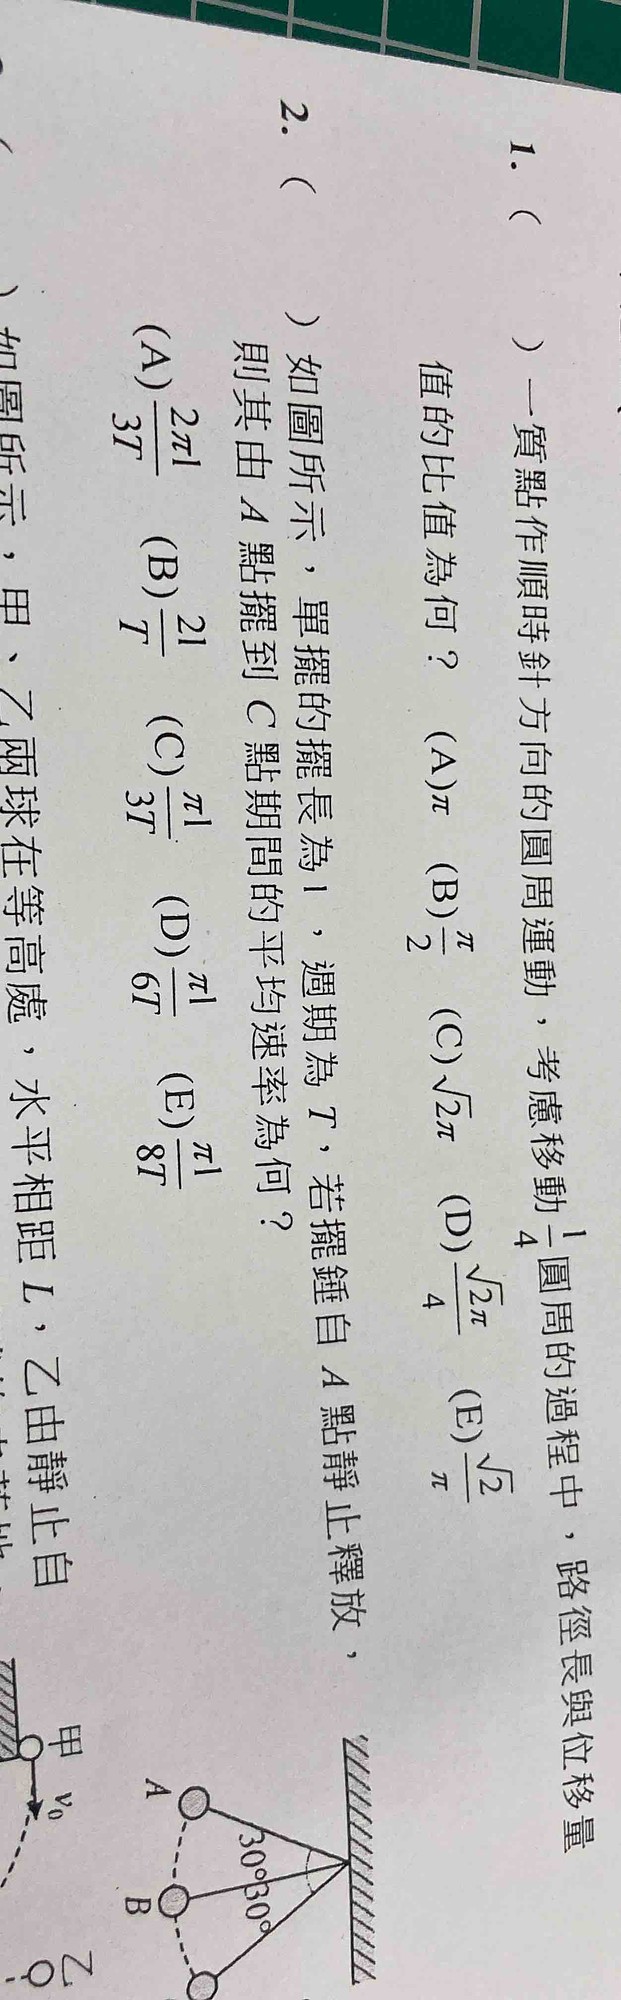 1. (　　) 一質點作順時針方向的圓周運動，考慮移動1/4圓周的過程中，路徑長與位移量
值的比值為何？ (A)π (B)π/2 (C)√2π (D)√2π/4 (E)√2/π
2. (　　) 如圖所示，單擺的擺長為l，週期為T，若擺錘自A點靜止釋放，
則其由A點擺到C點期間的平均速率為何？
(A)2πl/3T (B)2l/T (C)πl/3T (D)πl/6T (E)πl/8T
30°30°
A
B
) 如圖所示，甲、乙兩球在等高處，水平相距L，乙由靜止自
甲
v₀
乙